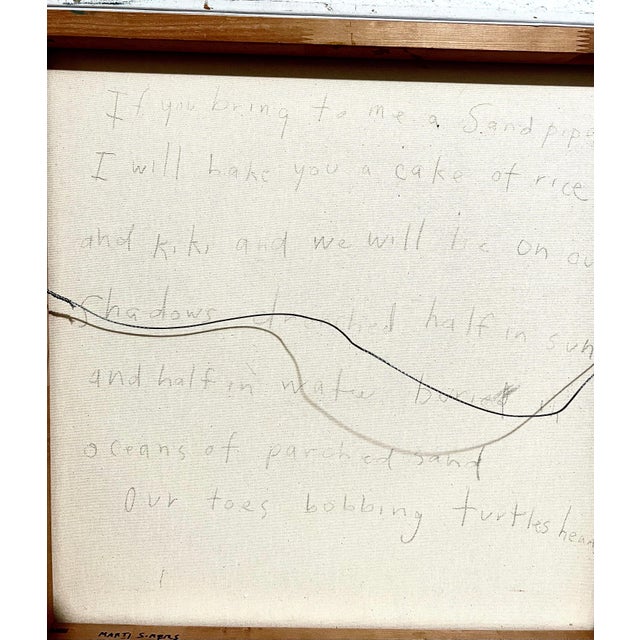 If you bring to me a Sandpipe
I will bake you a cake of rice
and kiki and we will lie on ou
Shadows drenched half in sun
and half in water buried in
oceans of parched sand
Our toes bobbing turtles hea
MARTI